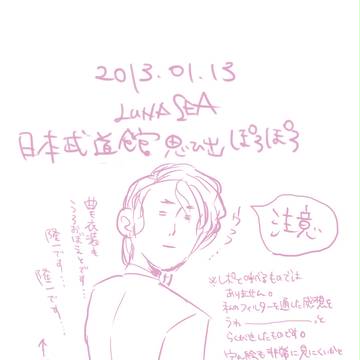 2013.01.13
LUNA SEA
日本武道館思ひ出ぽろぽろ
注意
曲も衣装も
うろおぼえとです…
隆一です…
隆一です…
↑
※レポと呼べるものでは
ありません。
私のフィルターを通した感想を
うわ――――――っと
らくがきしたものです。
ゆえ絵も非常に見にくいかと